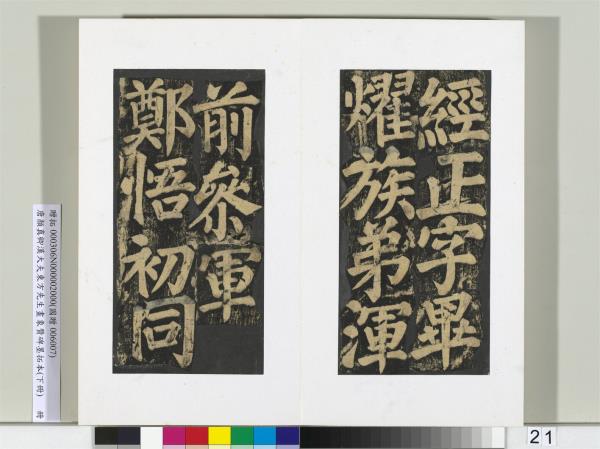 經正字畢
燿族弟渾
前參軍
鄭悟初同
贈拓 000306N000002000(國贈 006007)
唐顏真卿漢大夫東方先生畫象贊碑墨拓本(下冊) 冊
21